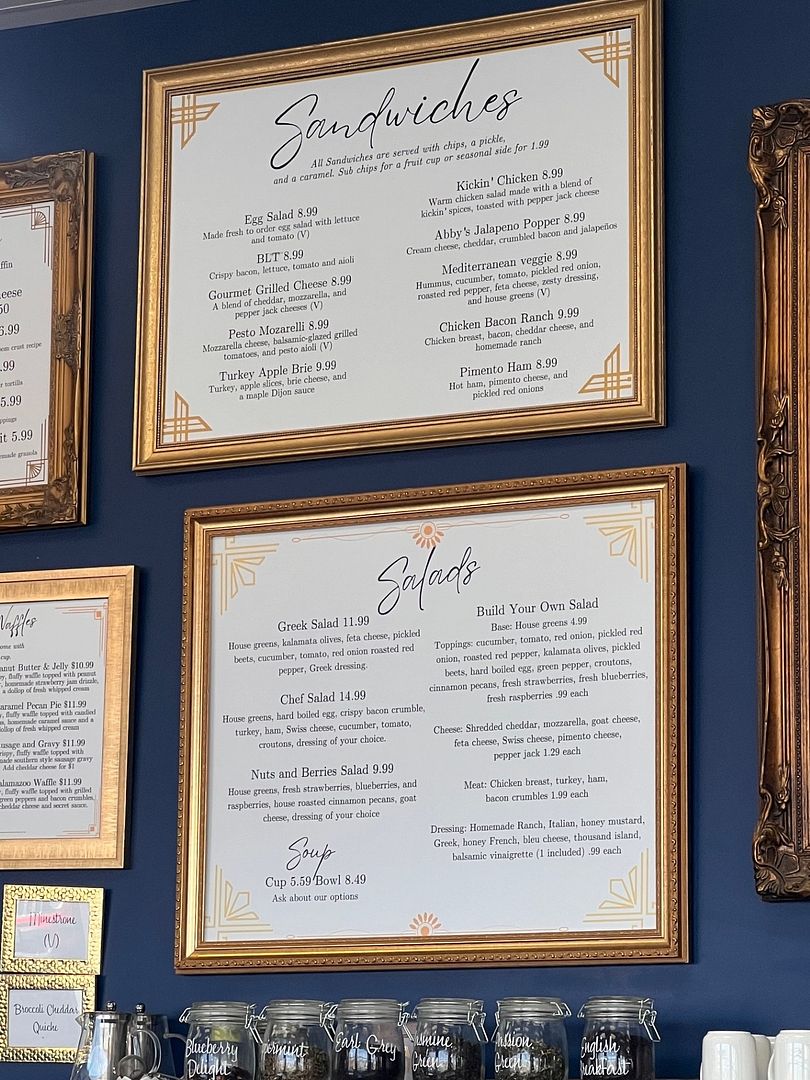 Sandwiches
All Sandwiches are served with chips, a pickle,
and a caramel. Sub chips for a fruit cup or seasonal side for 1.99
Egg Salad 8.99
Made fresh to order egg salad with lettuce
and tomato (V)
BLT 8.99
Crispy bacon, lettuce, tomato and aioli
Gourmet Grilled Cheese 8.99
A blend of cheddar, mozzarella, and
pepper jack cheeses (V)
Pesto Mozarelli 8.99
Mozzarella cheese, balsamic-glazed grilled
tomatoes, and pesto aioli (V)
Turkey Apple Brie 9.99
Turkey, apple slices, brie cheese, and
a maple Dijon sauce
Kickin' Chicken 8.99
Warm chicken salad made with a blend of
kickin' spices, toasted with pepper jack cheese
Abby's Jalapeno Popper 8.99
Cream cheese, cheddar, crumbled bacon and jalapeños
Mediterranean veggie 8.99
Hummus, cucumber, tomato, pickled red onion,
roasted red pepper, feta cheese, zesty dressing,
and house greens (V)
Chicken Bacon Ranch 9.99
Chicken breast, bacon, cheddar cheese, and
homemade ranch
Pimento Ham 8.99
Hot ham, pimento cheese, and
pickled red onions
Salads
Greek Salad 11.99
House greens, kalamata olives, feta cheese, pickled
beets, cucumber, tomato, red onion roasted red
pepper, Greek dressing.
Chef Salad 14.99
House greens, hard boiled egg, crispy bacon crumble,
turkey, ham, Swiss cheese, cucumber, tomato,
croutons, dressing of your choice.
Nuts and Berries Salad 9.99
House greens, fresh strawberries, blueberries, and
raspberries, house roasted cinnamon pecans, goat
cheese, dressing of your choice
Soup
Cup 5.59 Bowl 8.49
Ask about our options
Build Your Own Salad
Base: House greens 4.99
Toppings: cucumber, tomato, red onion, pickled red
onion, roasted red pepper, kalamata olives, pickled
beets, hard boiled egg, green pepper, croutons,
cinnamon pecans, fresh strawberries, fresh blueberries,
fresh raspberries .99 each
Cheese: Shredded cheddar, mozzarella, goat cheese,
feta cheese, Swiss cheese, pimento cheese,
pepper jack 1.29 each
Meat: Chicken breast, turkey, ham,
bacon crumbles 1.99 each
Dressing: Homemade Ranch, Italian, honey mustard,
Greek, honey French, bleu cheese, thousand island,
balsamic vinaigrette (1 included) .99 each
5.99
Waffles
come with
cup.
Butter & Jelly $10.99
fluffy waffle topped with peanut
homemade strawberry jam drizzle,
a dollop of fresh whipped cream
Caramel Pecan Pie $11.99
fluffy waffle topped with candied
homemade caramel sauce and a
dollop of fresh whipped cream
Sausage and Gravy $11.99
fluffy waffle topped with
made southern style sausage gravy
Add cheddar cheese for $1
Kalamazoo Waffle $11.99
fluffy waffle topped with grilled
green peppers and bacon crumbles,
cheddar cheese and secret sauce.
Minestrone
(V)
Broccoli Cheddar
Quiche
Blueberry
Delight
Earl Grey
Jasmine
Green
Passion
Green
English
Breakfast